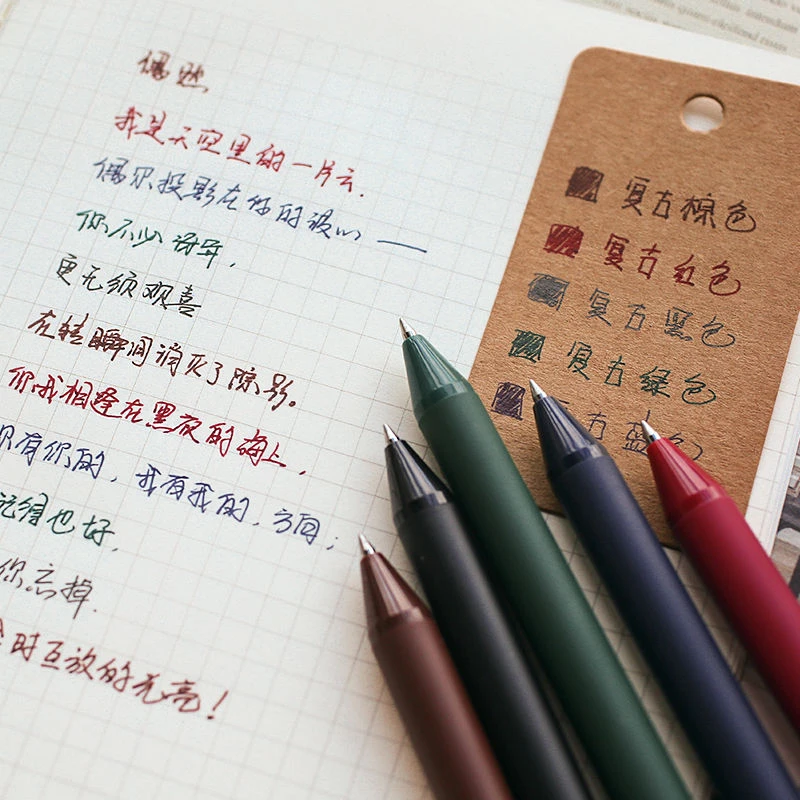 偶然
我是天空里的一片云.
偶尔投影在你的波心 ——
你不必讶异,
更无须观喜
在转瞬间消灭了踪影。
你我相逢在黑夜的海上,
你有你的, 我有我的, 方向;
记得也好,
你忘掉.
时互放的光亮!
复古棕色
复古红色
复古黑色
复古绿色
古蓝色